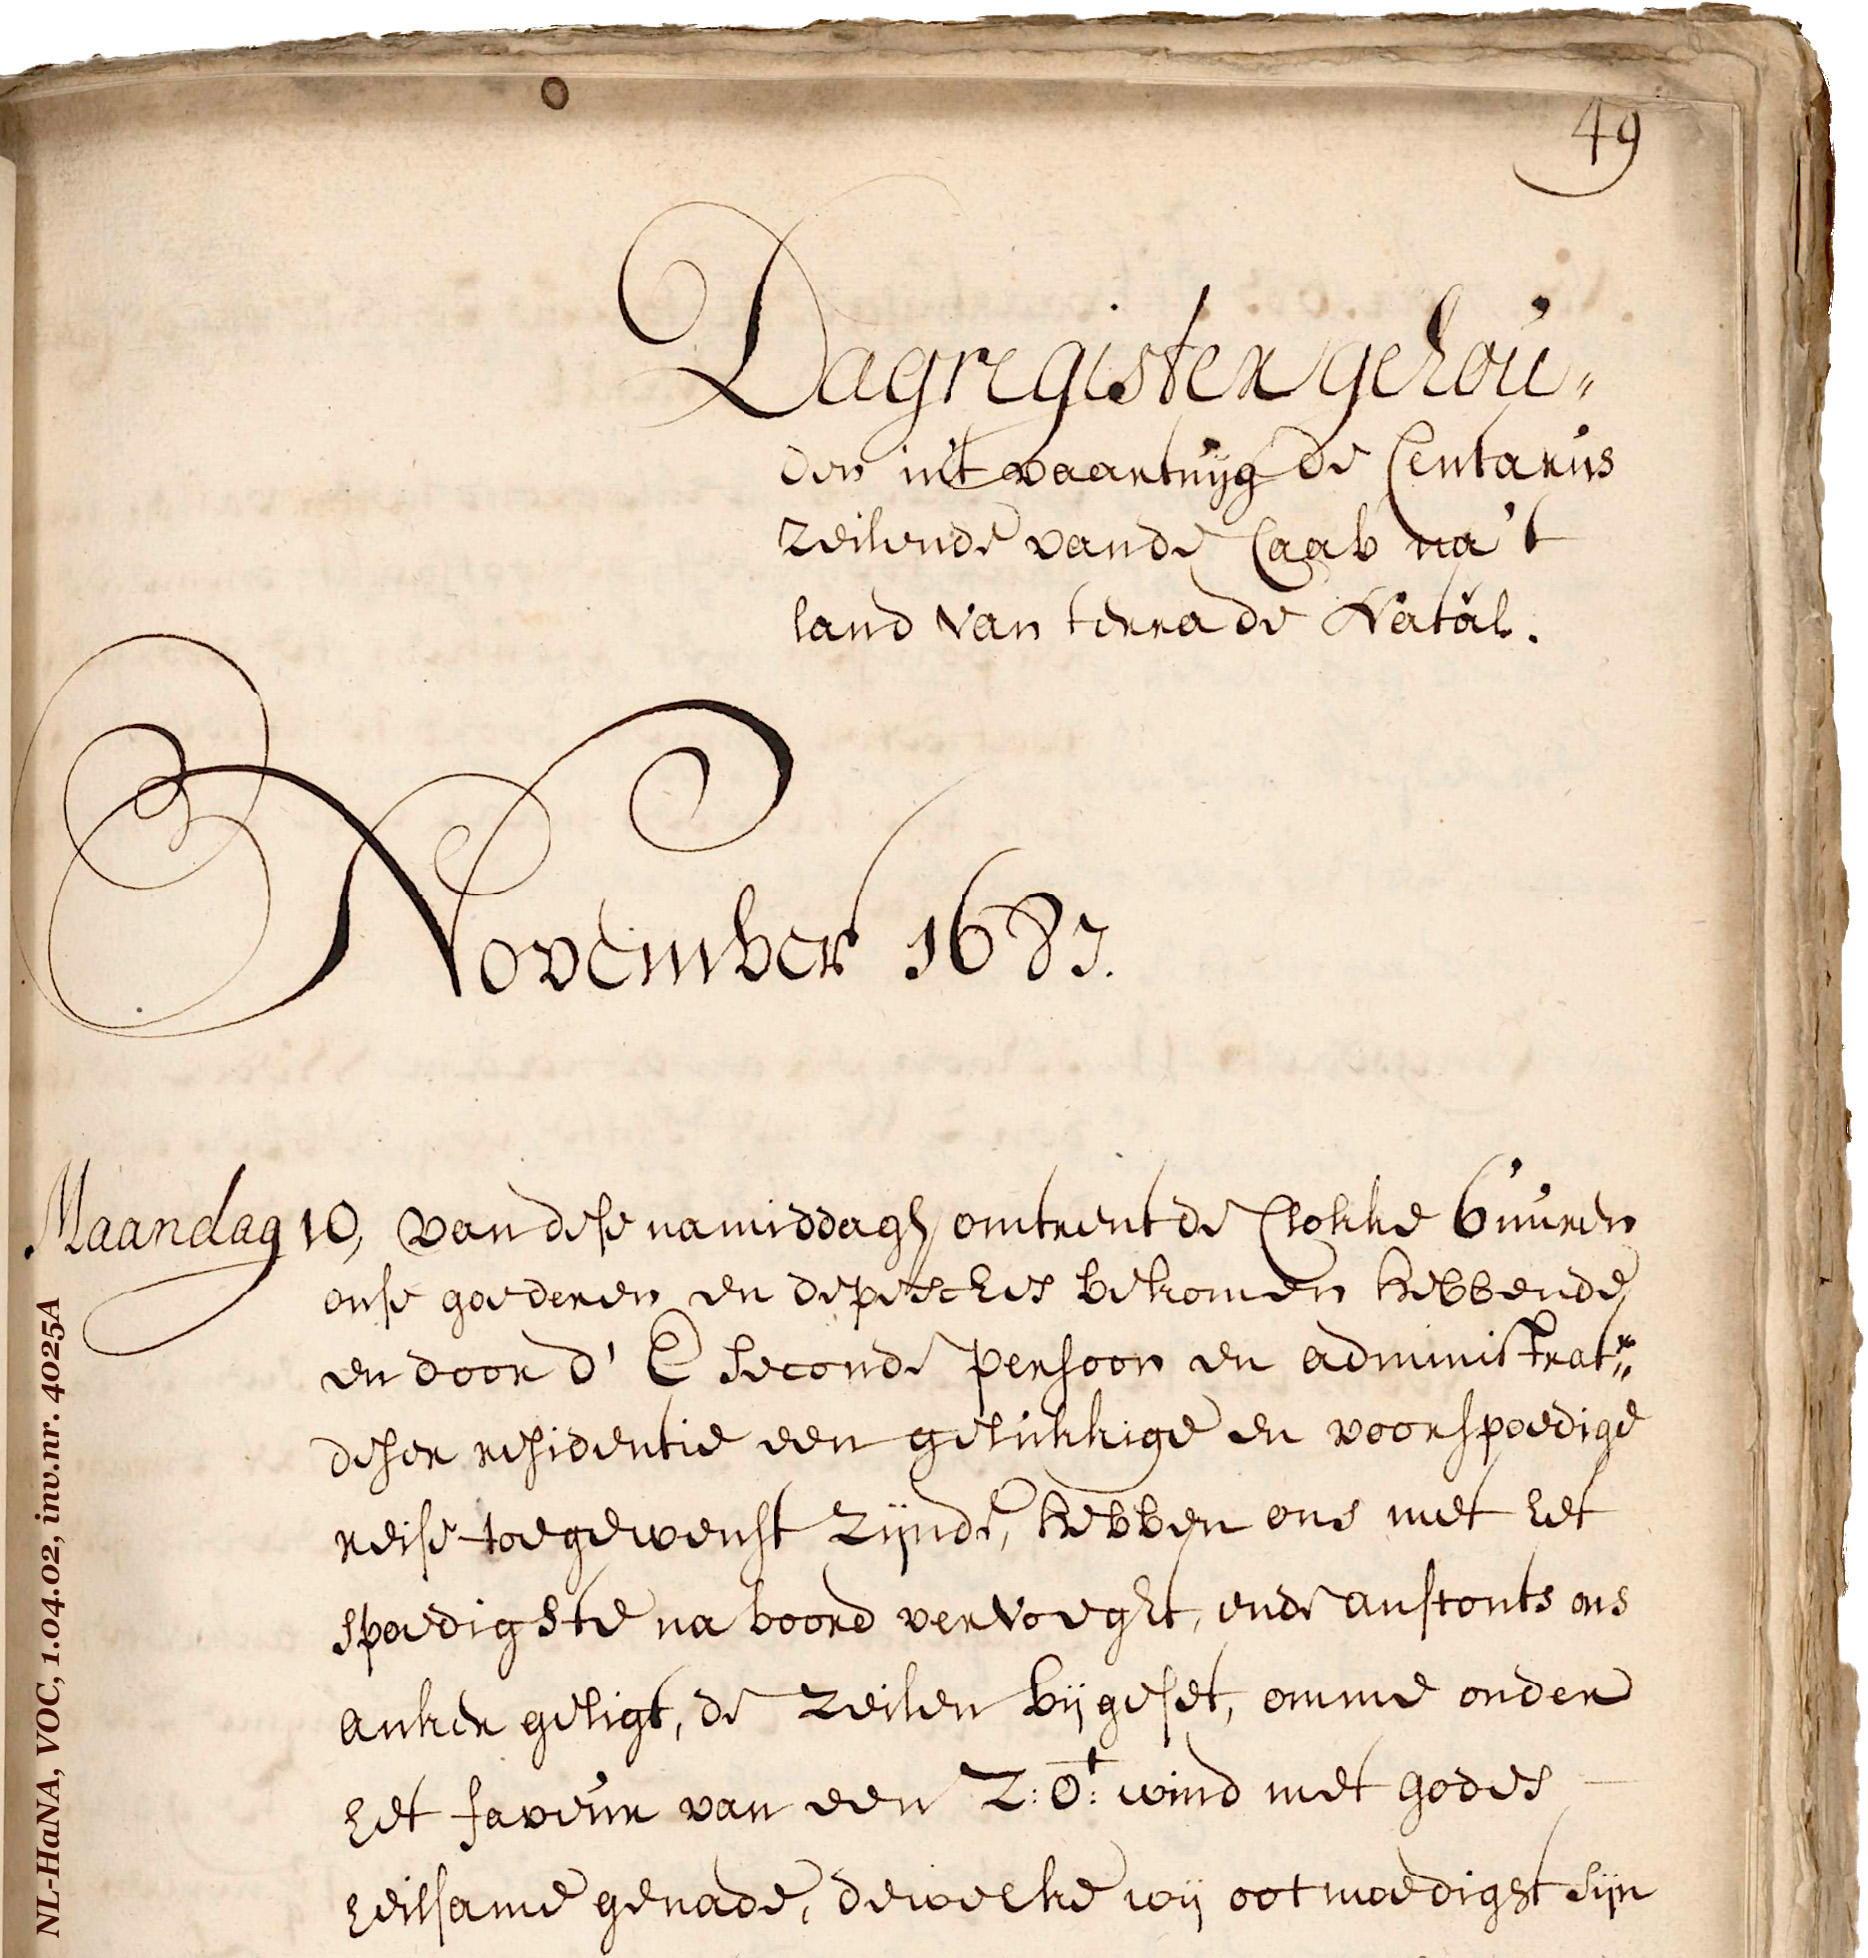 49
Dagregister gehou„
den int vaartuijg de Centarus
zeilende vande Caab na 't
land van terra de Natal.
November 1687.
Maandag 10, van dese namiddagh omtrent de Clokke 6 uuren
onse goederen en depesches bekomen hebbende,
en door d' E seconde persoon en administratr„
deser residentie een gelukkige en voorspoedige
reise toegewenst zijnde, hebben ons met het
spoedigste na boord vervoeght, ende anstonts ons
anker geligt, de zeilen bijgeset, omme onder
het faveur van een Z:Ot: wind met godes
heilsame genade, dewelke wij ootmoedigst sijn
NL-HaNA, VOC, 1.04.02, inv.nr. 4025A